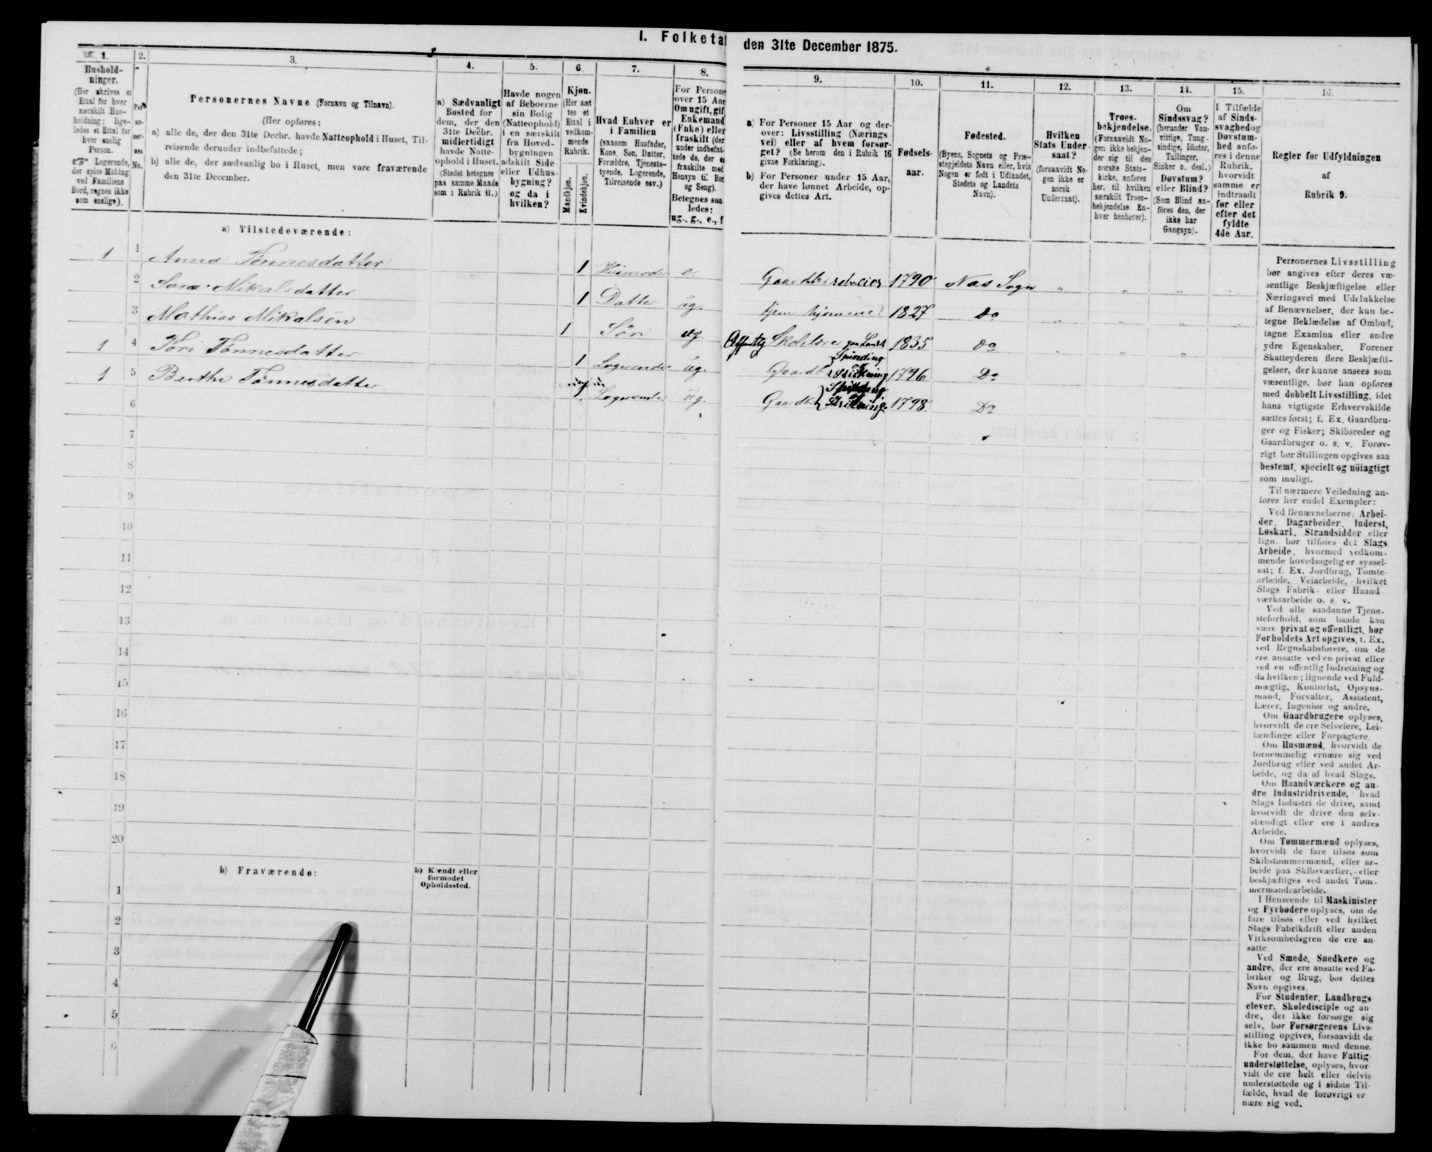 I. Folketal den 31te December 1875.
1.
Hushold-
ninger.
(Her skrives et
Ettal for hver
særskilt Hus-
holdning; lige-
ledes et Ettal for
hver enslig
Person.
Logerende,
der spise Middag
ved Familiens
Bord, regnes ikke
som enslige).
2.
Per-
so-
ner-
nes
No.
3.
Personernes Navne (Fornavn og Tilnavn).
(Her opføres:
a) alle de, der den 31te Decbr. havde Natteophold i Huset, Til-
reisende derunder indbefattede;
b) alle de, der sædvanlig bo i Huset, men vare fraværende
den 31te December.
4.
a) Sædvanligt
Bosted for
dem, der den
31te Decbr.
midlertidigt
havde Natte-
ophold i Huset.
(Stedet betegnes
paa samme Maade
som i Rubrik 6.)
5.
Havde nogen
af Beboerne
sin Bolig
(Natteophold)
i en særskilt
fra Hoved-
bygningen
adskilt Side-
eller Udhus-
bygning?
og da i
hvilken?
6.
Kjøn.
(Her sæt-
tes et
Ettal i
vedkom-
mende
Rubrik.
Mandkjøn.
Kvindekjøn.
7.
Hvad Enhver er
i Familien
(saasom Husfader,
Kone, Søn, Datter,
Forældre, Tjeneste-
tyende, Logerende,
Tilreisende osv.)
8.
For Persone
over 15 Aar
Om ugift, gif
Enkemand
(Enke) eller
fraskilt (der
under indbefat-
tede de, der e
fraskilte med
Hensyn til Bor
og Seng).
Betegnes saa
ledes:
ug., g., e., f
9.
a) For Personer 15 Aar og der-
over: Livsstilling (Nærings
vei) eller af hvem forsør-
get? (Se herom den i Rubrik 16
givne Forklaring).
b) For Personer under 15 Aar,
der have lønnet Arbeide, op-
gives dettes Art.
10.
Fødsels-
aar.
11.
Fødested.
(Byens, Sognets og Præ-
stegjeldets Navn eller, hvis
Nogen er født i Udlandet,
Stedets og Landets
Navn).
12.
Hvilken
Stats Under-
saat?
(forsaavidt No-
gen ikke er
norsk
Undersaat).
13.
Troes-
bekjendelse.
(Forsaavidt No-
gen ikke bekjen-
der sig til den
norske Stats-
kirke, anføres
her, til hvilken
særskilt Troes-
bekjendelse En-
hver henhører).
14.
Om
Sindssvag?
(herunder Van-
vittige, Tung-
sindige, Idioter,
Tullinger,
Sinker o. desl.)
Døvstum?
eller Blind?
(Som Blind an-
føres den, der
ikke har
Gangsyn).
15.
I Tilfælde
af Sinds-
svaghed og
Døvstum-
hed anfø-
res i denne
Rubrik,
hvorvidt
samme er
indtraadt
før eller
efter det
fyldte
4de Aar.
16.
Regler for Udfyldningen
af
Rubrik 9.
a) Tilstedeværende:
1 1 Anna Tønnesdatter 1 Husmoder e. Gaardbr. selveier 1790 Næs Sogn
2 Sara Mikalsdatter 1 Datter ug. hjemme 1827 Do
3 Mathias Mikalsen 1 Søn ug Skolelærer 1835 Do
1 4 Tøri Tønnesdatter 1 Logerende ug. Spinding Strikning 1796 Do
1 5 Berthe Tønnesdatter 1 Logerende ug. Spinding Strikning 1798 Do
6
7
8
9
10
11
12
13
14
15
16
17
18
19
20
b) Fraværende:
b) Kjendt eller
formodet
Opholdssted.
1
2
3
4
5
6
Personernes Livsstilling
bør angives efter deres væ-
sentlige Beskjæftigelse eller
Næringsvei med Udelukkelse
af Benævnelser, der kun be-
tegne Beklædelse af Ombud,
tagne Examina eller andre
ydre Egenskaber. Forener
Skatteyderen flere Beskjæfti-
gelser, der kunne ansees som
væsentlige, bør han opføres
med dobbelt Livsstilling, idet
hans vigtigste Erhvervskilde
sættes først; f. Ex. Gaardbru-
ger og Fisker; Skibsreder og
Gaardbruger o. s. v. Forøv-
rigt bør Stillingen opgives saa
bestemt, specielt og nöiagtigt
som muligt.
Til nærmere Veiledning an-
føres her endel Exempler:
Ved Benævnelserne: Arbei-
der, Dagarbeider, Inderst,
Løskarl, Strandsidder eller
lign. bør tilføies det Slags
Arbeide, hvormed vedkom-
mende hovedsagelig er syssel-
sat; f. Ex. Jordbrug, Tomte-
arbeide, Veiarbeide, hvilket
Slags Fabrik- eller Haand-
værksarbeide o. s. v.
Ved alle saadanne Tjene-
steforhold, som baade kan
være privat og offentligt, bør
Forholdets Art opgives, f. Ex.
ved Regnskabsførere, om de
ere ansatte ved en privat eller
ved en offentlig Indretning og
da hvilken; lignende ved Fuld-
mægtig, Kontorist, Opsyns-
mand, Forvalter, Assistent,
Lærer, Ingeniør og andre.
Om Gaardbrugere oplyses,
hvorvidt de ere Selveiere, Lei-
lændinge eller Forpagtere.
Om Husmænd, hvorvidt de
fornemmelig ernære sig ved
Jordbrug eller ved andet Ar-
beide, og da af hvad Slags.
Om Haandværkere og an-
dre Industridrivende, hvad
Slags Industri de drive, samt
hvorvidt de drive den selv-
stændigt eller ere i andres
Arbeide.
Om Tømmermænd oplyses,
hvorvidt de fare tilsøs som
Skibstømmermænd, eller ar-
beide paa Skibsværfter, eller
beskjæftiges ved andet Tøm-
mermandsarbeide.
I Henseende til Maskinister
og Fyrbødere oplyses, om de
fare tilsøs eller ved hvilket
Slags Fabrikdrift eller anden
Virksomhedsgren de ere an-
satte
Ved Smede, Snedkere og
andre, der ere ansatte ved Fa-
briker og Brug, bør dettes
Navn opgives.
For Studenter, Landbrugs
elever, Skoledisciple og an-
dre, der ikke forsørge sig
selv, bør Forsørgerens Livs-
stilling opgives, forsaavidt de
ikke bo sammen med denne.
For dem, der have Fattig-
understøttelse, oplyses, hvor-
vidt de ere helt eller delvis
understøttede og i sidste Til-
fælde, hvad de forøvrigt er
nære sig ved.